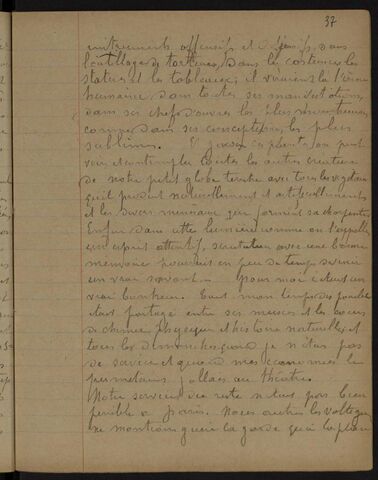 37
instruments offensifs et défensifs, dans
l'outillage de tortures, dans les costumes les
statues et les tableaux; il verraient la
humaine dans toutes ses manifestations,
dans ses chefs d'œuvres les plus
comme dans ses conceptions les plus
sublimes. El on peut
voir et contempler toutes les autres creatures
de notre petit globe terrestre avec tous les vegetaux
qu'il produit naturellement et artificiellement
et les divers mineraux qui forment sa charpente
Enfin dans cette lumiere comme on l'appelle
un esprit attentif, scrutateur avec une bonne
memoire pourrait en peu de temps devenir
un vrai savant. Pour moi c'etait un
vrai bonheur. Tout mon temps
etait partagé entre ses musées et les cours
de chimie physique et histoire naturelle, et
tous les dimanches quand je n'étais pas
de service et quand mes economies le
permetaient j'allais au théatre.
Notre service du reste n'etait pas bien
penible a paris. Nous autres les voltigeurs
ne montions guère la garde qu'à la place